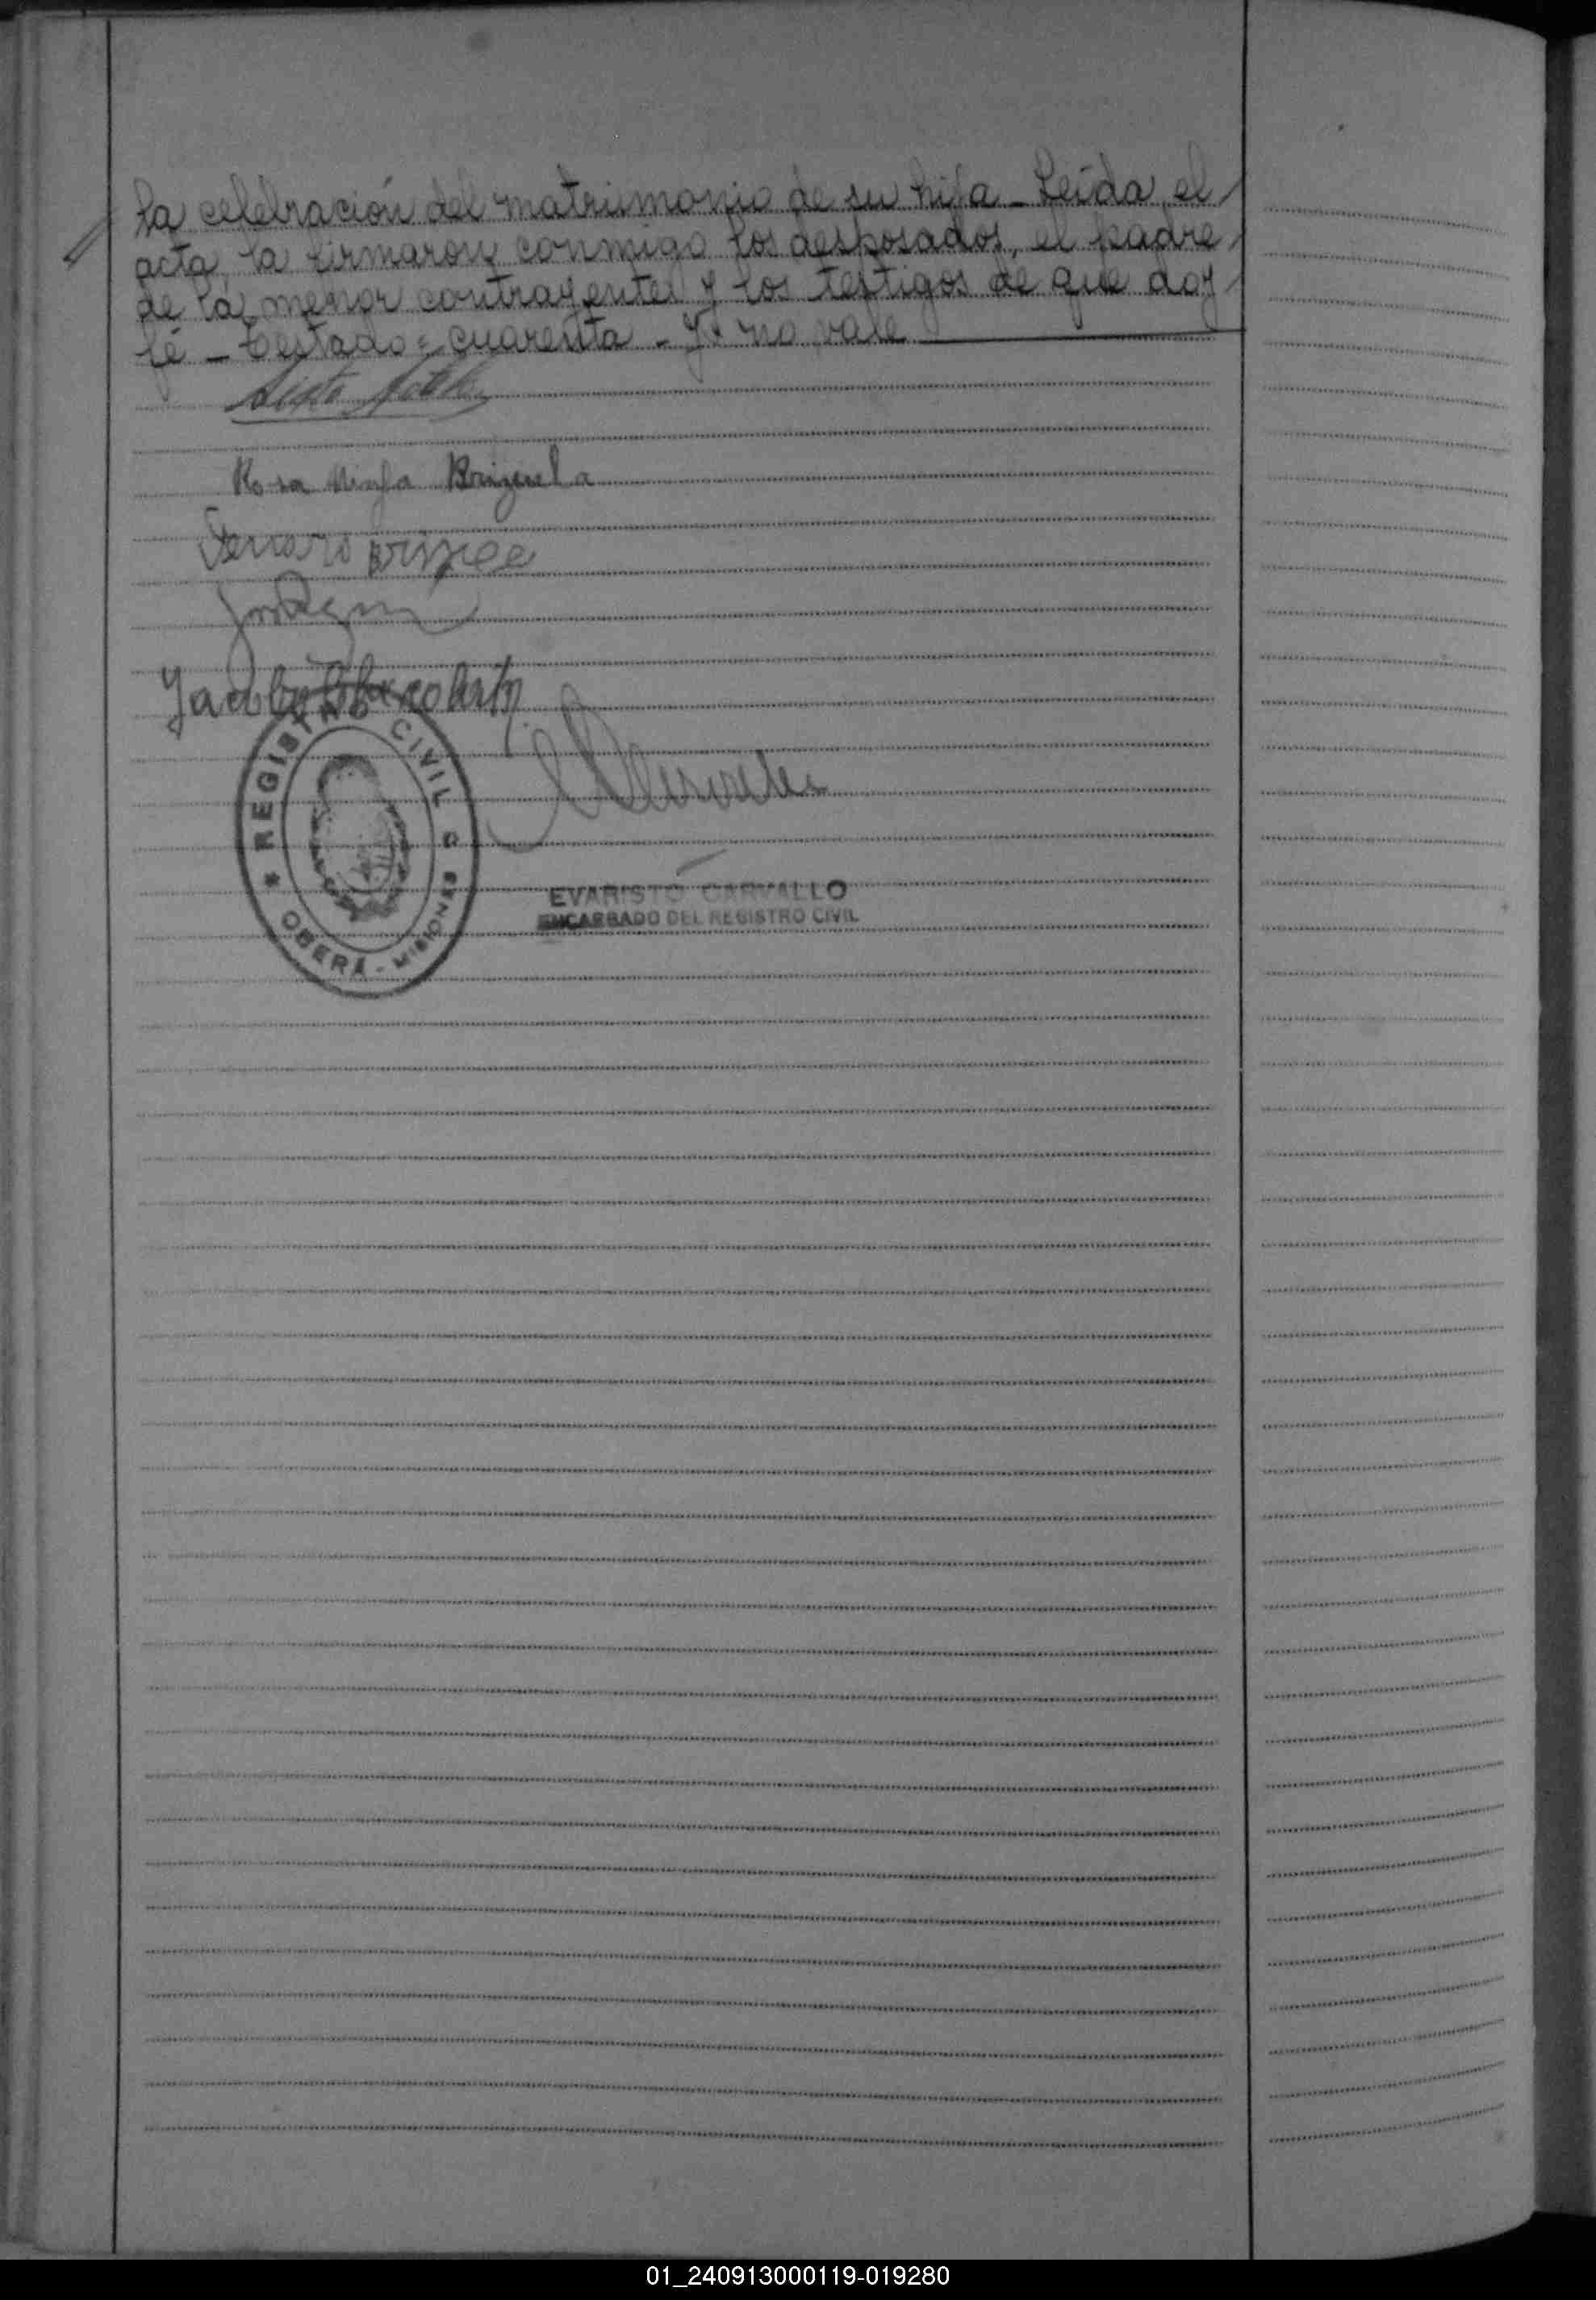 la celebración del matrimonio de su hija _ Leída el
acta, la firmaron conmigo los desposados, el padre
de la menor contrayente y los testigos de que doy
fé _ Testado = cuarenta - no vale
Rosa Ninfa Brizuela
REGISTRO CIVIL
OBERA - MISIONES
EVARISTO CARVALLO
ENCARGADO DEL REGISTRO CIVIL
01_240913000119-019280